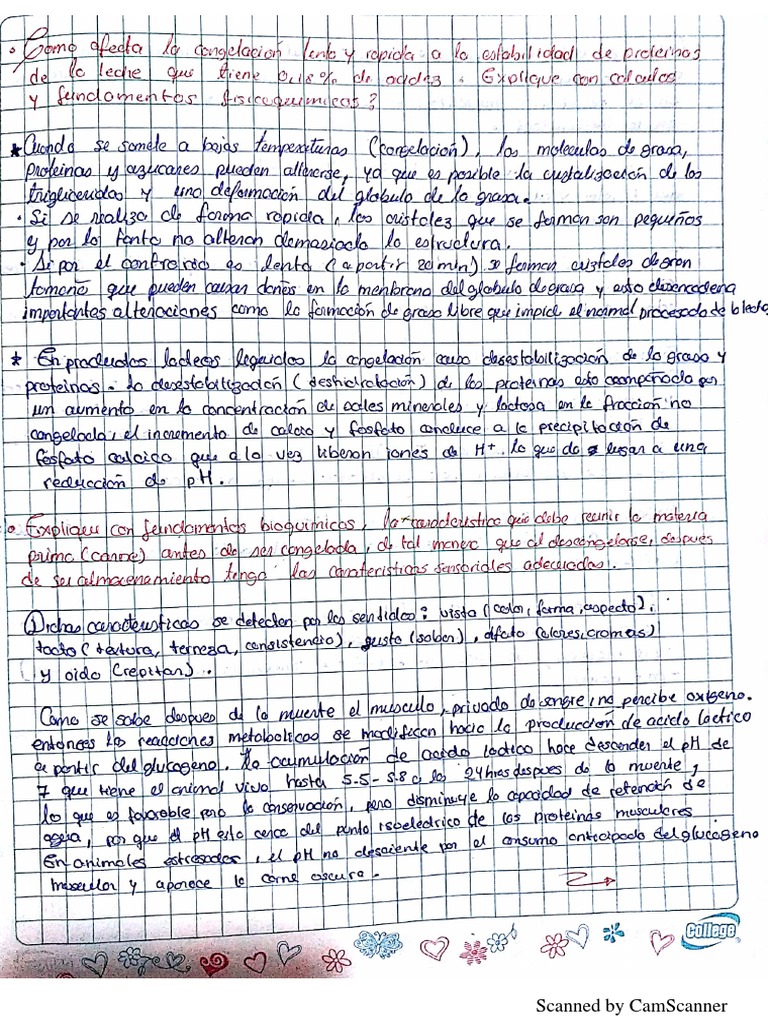 • Como afecta la congelación lenta y rapida a la estabilidad de proteinas
de la leche que tiene 0,18% de acidez. Explique con calculos
y fundamentos fisicoquimicos?
* Cuando se somete a bajas temperaturas (congelación), las moleculas de grasa,
proteinas y azucares pueden alterarse, ya que es posible la cristalización de los
trigliceridos y una deformación del globulo de la grasa.
• Si se realiza de forma rapida, los cristales que se forman son pequeños
y por lo tanto no alteran demasiado la estructura.
• Si por el contrario es lenta (a partir 20 min) se forman cristales de gran
tamaño que pueden causar daños en la membrana del globulo de grasa y esto desencadena
importantes alteraciones como la formación de grasa libre que impide el normal procesado de la leche
* En productos lacteos liquidos la congelación causa desestabilización de la grasa y
proteinas. la desestabilización (deshidratación) de las proteinas esta acompañada por
un aumento en la concentración de sales minerales y lactosa en la fracción no
congelada, el incremento de calcio y fosfato conduce a la precipitación de
fosfato calcico que a la vez liberan iones de H+. lo que da lugar a una
reducción de pH.
• Explique con fundamentos bioquimicos, la caracteristica que debe reunir la materia
prima (carne) antes de ser congelada, de tal manera que al descongelarse, despues
de ser almacenamiento tenga las carateristicas sensoriales adecuadas.
Dichas caracteristicas se detectan por los sentidos: vista (color, forma, aspecto),
tacto (textura, terneza, consistencia), gusto (sabor), olfato (olores, aromas)
y oido (crepitan).
Como se sabe despues de la muerte el musculo, privado de sangre, no percibe oxigeno.
entonces las reacciones metabolicas se modifican hacia la producción de acido lactico
a partir del glucogeno. La acumulación de acido lactico hace descender el pH de
7 que tiene el animal vivo hasta 5.5-5.8 a las 24 hras despues de la muerte,
lo que es favorable para la conservación, pero disminuye la capacidad de retención de
agua, por que el pH esta cerca del punto isoelectrico de las proteinas musculares.
En animales estresados, el pH no desciente por el consumo anticipado del glucogeno
muscular y aparece la carne oscura.
College
Scanned by CamScanner